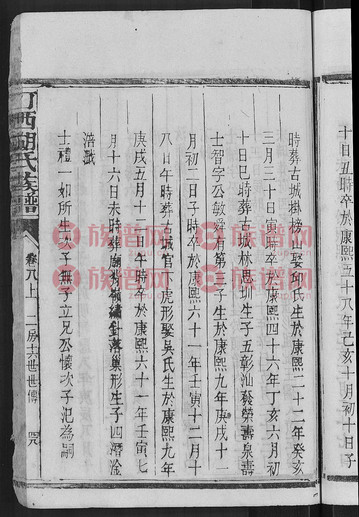 十日丑時卒於康熙五十八年己亥十月初十日子
時葬古城掛榜山娶邱氏生於康熙二十二年癸亥
三月三十日寅時卒於康熙四十六年丁亥六月初
十日巳時葬古城林思圳生子五彰汕養榮壽泉壽
士智字公敏舜有第三子生於康熙九年庚戌十一
月初二日子時卒於康熙六十一年壬寅十二月十
八日午時葬古城官下虎形娶吳氏生於康熙九年
庚戌五月十二日午時卒於康熙六十一年壬寅七
月十六日未時葬廟背領繡針落巢形生子四潛淦
浩瀻
士禮一如所生次子無子立兄公懷次子汜為嗣
汀西胡氏族譜
卷八上
一房十六世世傳
族譜网